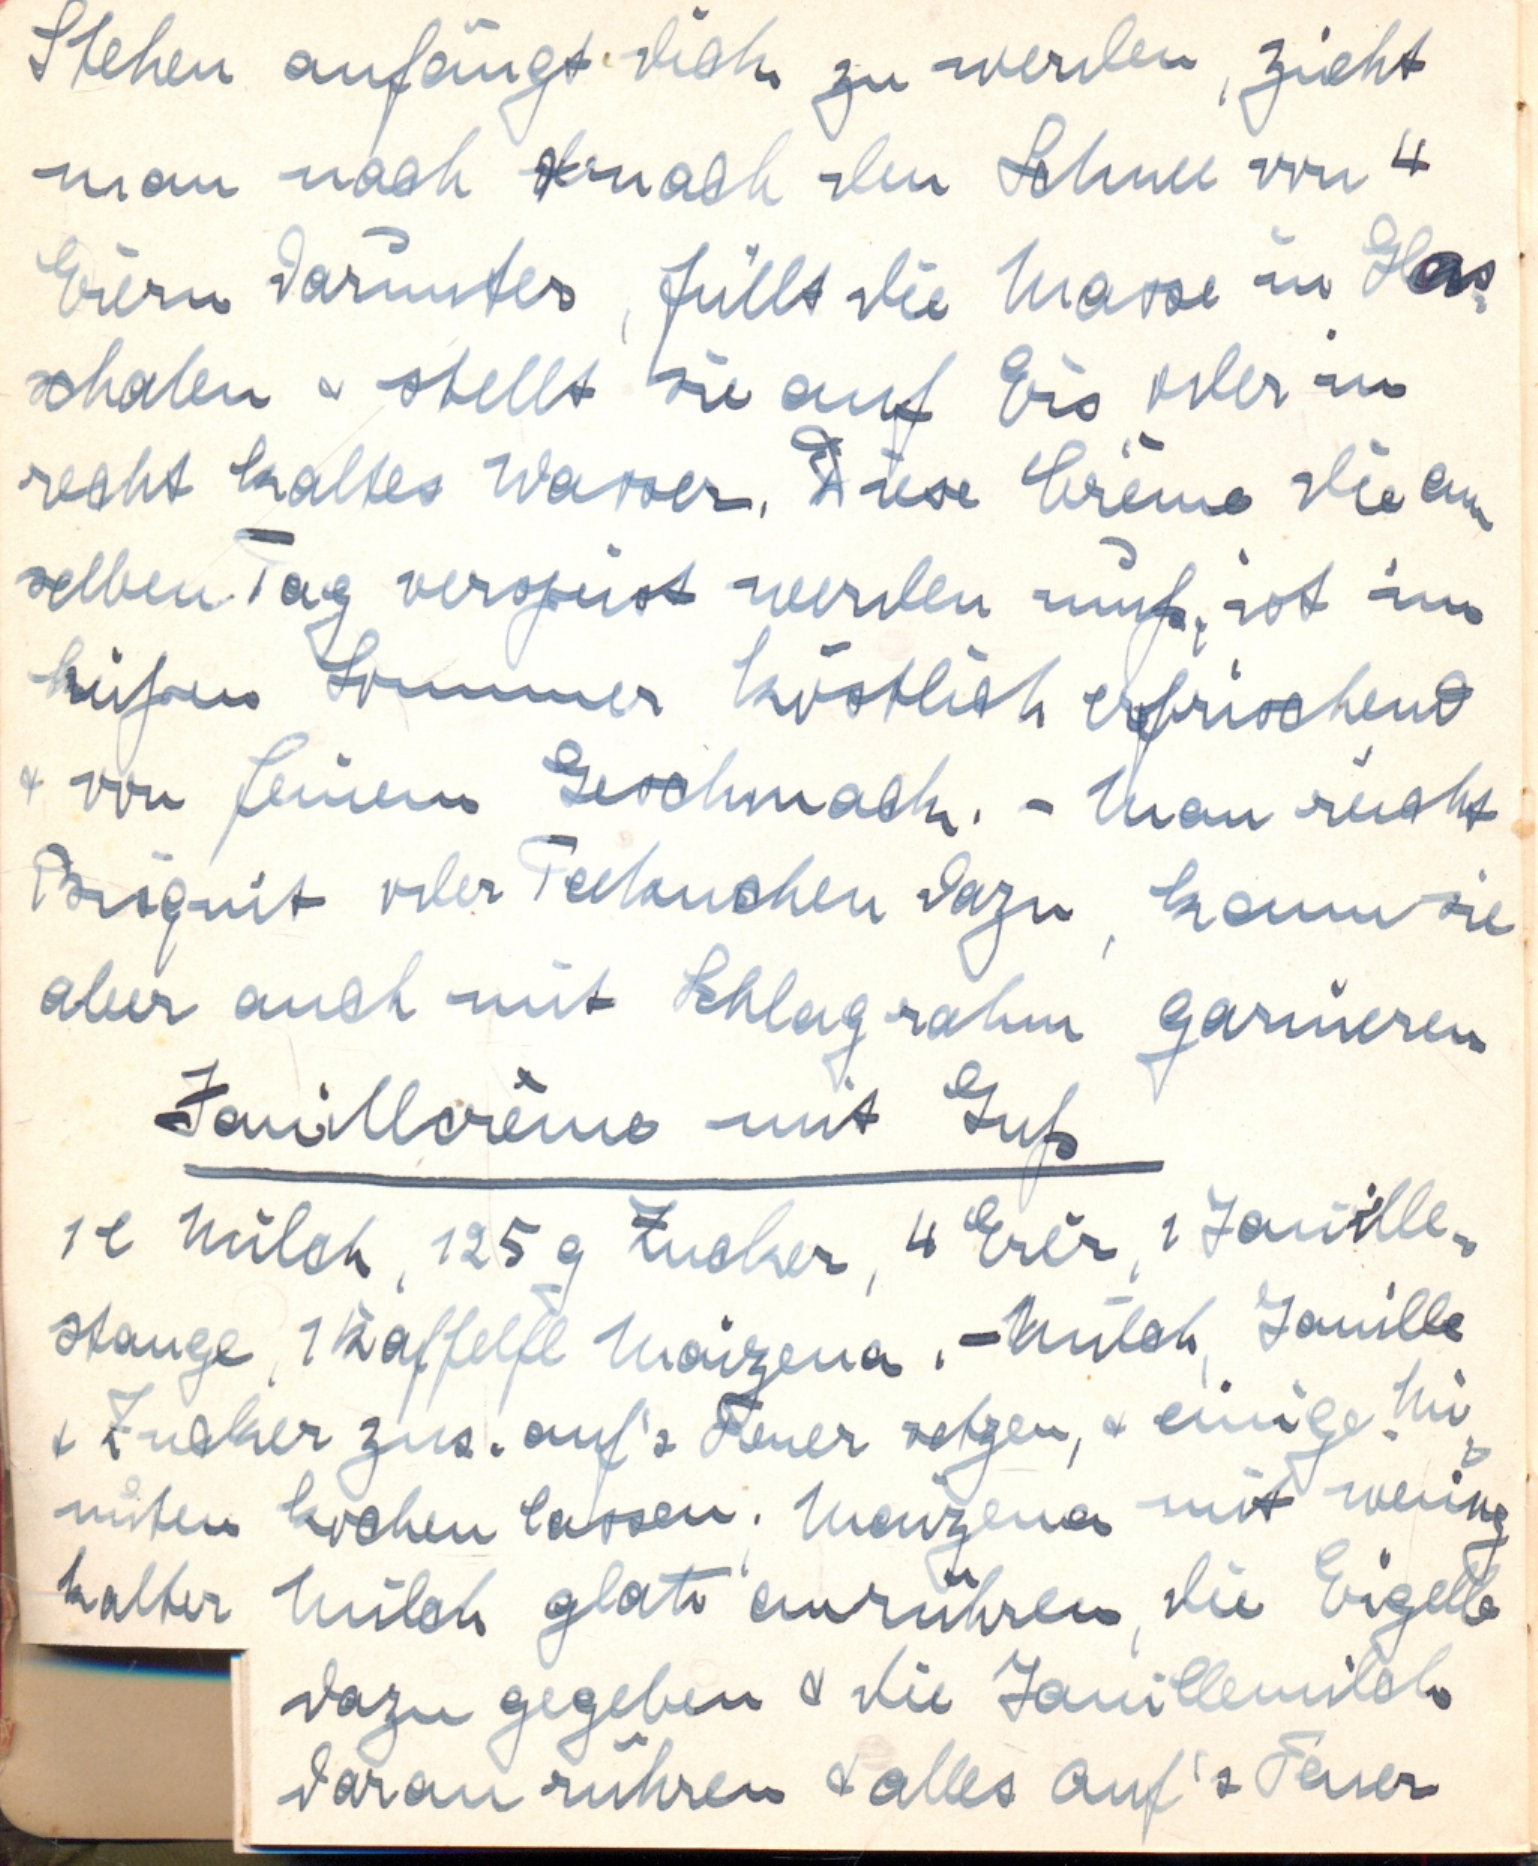 Stehen anfängt dick zu werden, zieht
man nach & nach den Schnee von 4
Eiern darunter, füllt die Masse in Glas-
schalen & stellt sie auf Eis oder in
recht kaltes Wasser. Diese Crème die am
selben Tag verspeist werden muß, ist im
heißen Sommer köstlich erfrischend
& von feinem Geschmack. - Man reicht
Bisquit oder Teekuchen dazu, kann sie
aber auch mit Schlagrahm garnieren
Vanillcrème mit Guß
1 l Milch, 125 g Zucker, 4 Eier, 1 Vanille-
stange, 1 Kaffelfl Maizena. - Milch, Vanille
& Zucker zus. auf's Feuer setzen, & einige Mi-
nuten kochen lassen. Maizena mit wenig
kalter Milch glatt anrühren, die Eigelb
dazu gegeben & die Vanillemilch
daran rühren & alles auf's Feuer